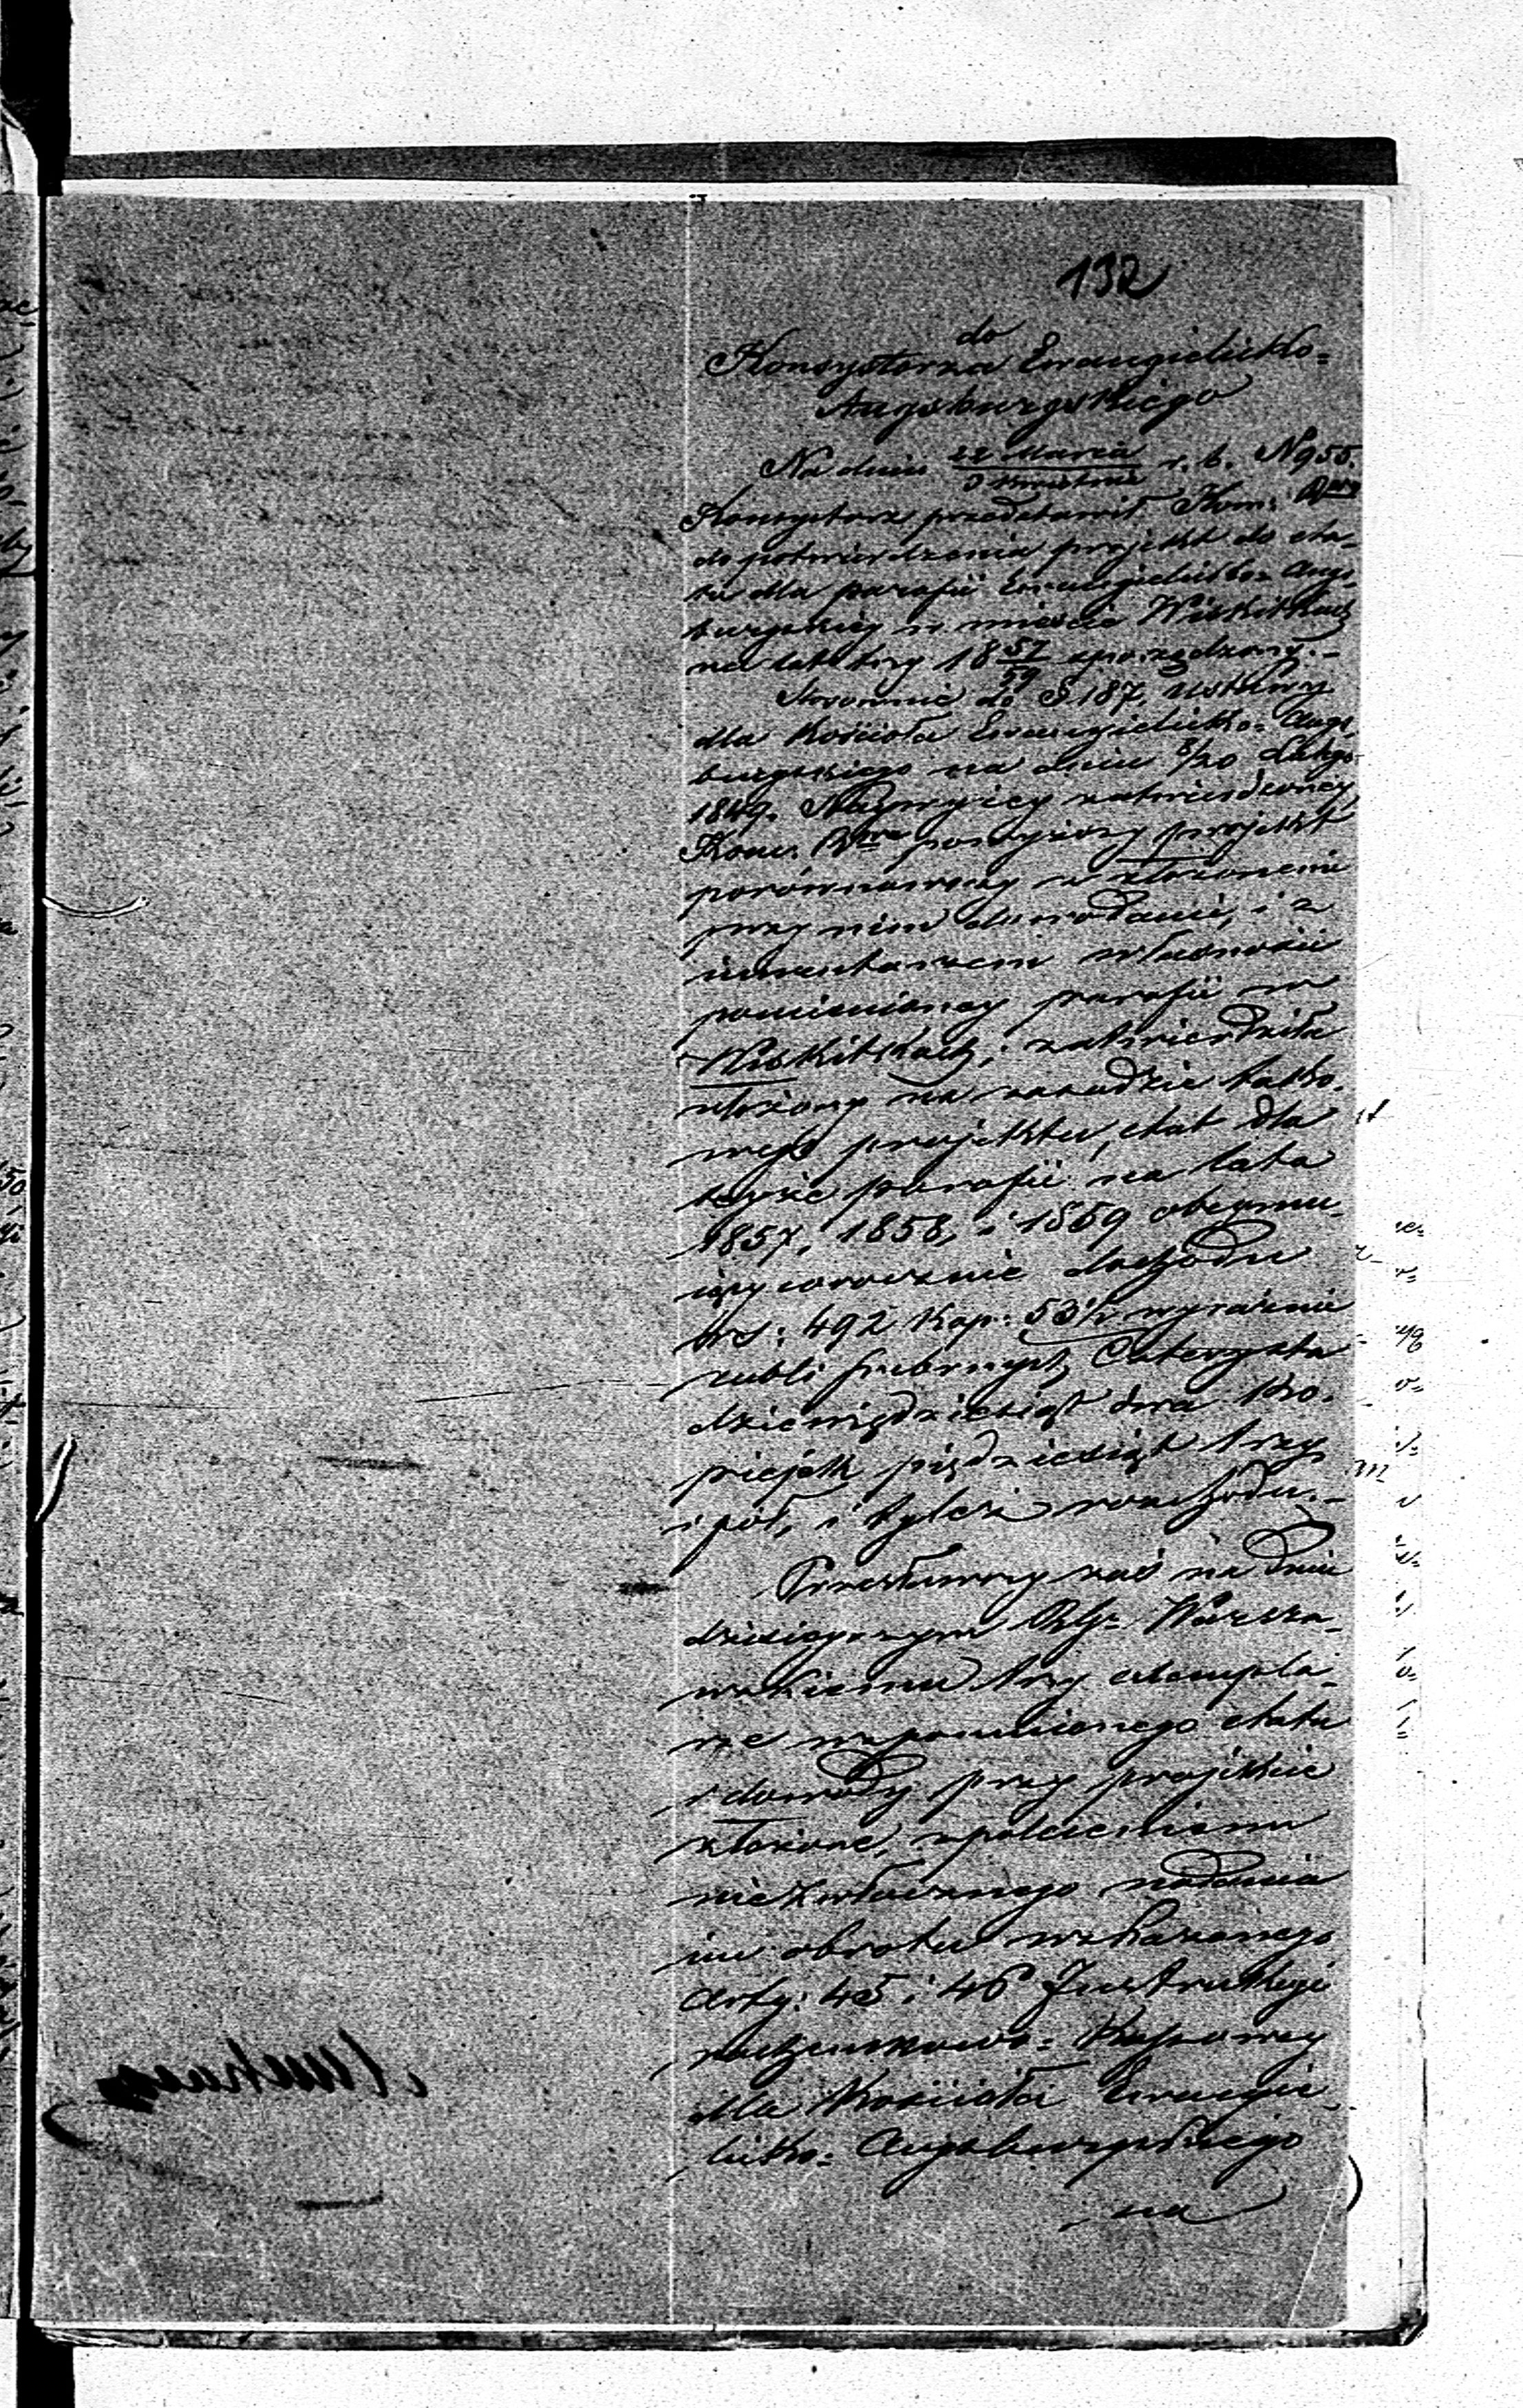 132
do
Konsystorza Ewangelicko=
Augsburgskiego
Na dniu 22 Marca / 3 Kwietnia r. b. N 955.
Konsystorz przedstawił Kom: Rząd
do potwierdzenia projekt do eta-
tu dla parafii Ewangelicko= Aug,
burgskiej w mieście Wiskitkach
na lata trzy 18 57/59 sporządzony.-
Stosownie do § 187. Ustawy
dla Kościoła Ewangielicko= Augs,
burgskiego na dniu 8/20 Lutego
1849. Najwyżej zatwierdzonej,
Kom. Rząd powyższy projekt
porównawszy z złożonemi
przy nim dowodami, i z
inwentarzem własności
pomienionej parafii w
Wiskitkach, zatwierdziła
ułożony na zasadzie tako,
wego projektu, etat dla
tejże parafii na lata
1857, 1858, i 1859 obejmu,
jący corocznie dochodu
Rs: 492 Kop: 53½ wyraźnie
rubli srebrnych Czterysta
dziewięćdziesiąt dwa Ko,
piejek pięćdziesiąt trzy
i pół, i tyleż rozchodu.-
Przesławszy zaś na dniu
dzisiejszym Warsza-
wskiemu trzy exempla-
rze wspomnionego etatu
i dowody przy projekcie
złożone, z poleceniem
niezwłocznego nadania
im obrotu wskazanego
Arty: 45 i 46 Instrukcyi
rachunkowo= Kassowej
dla Kościoła Ewangie-
licko= Augsburgskiego
na